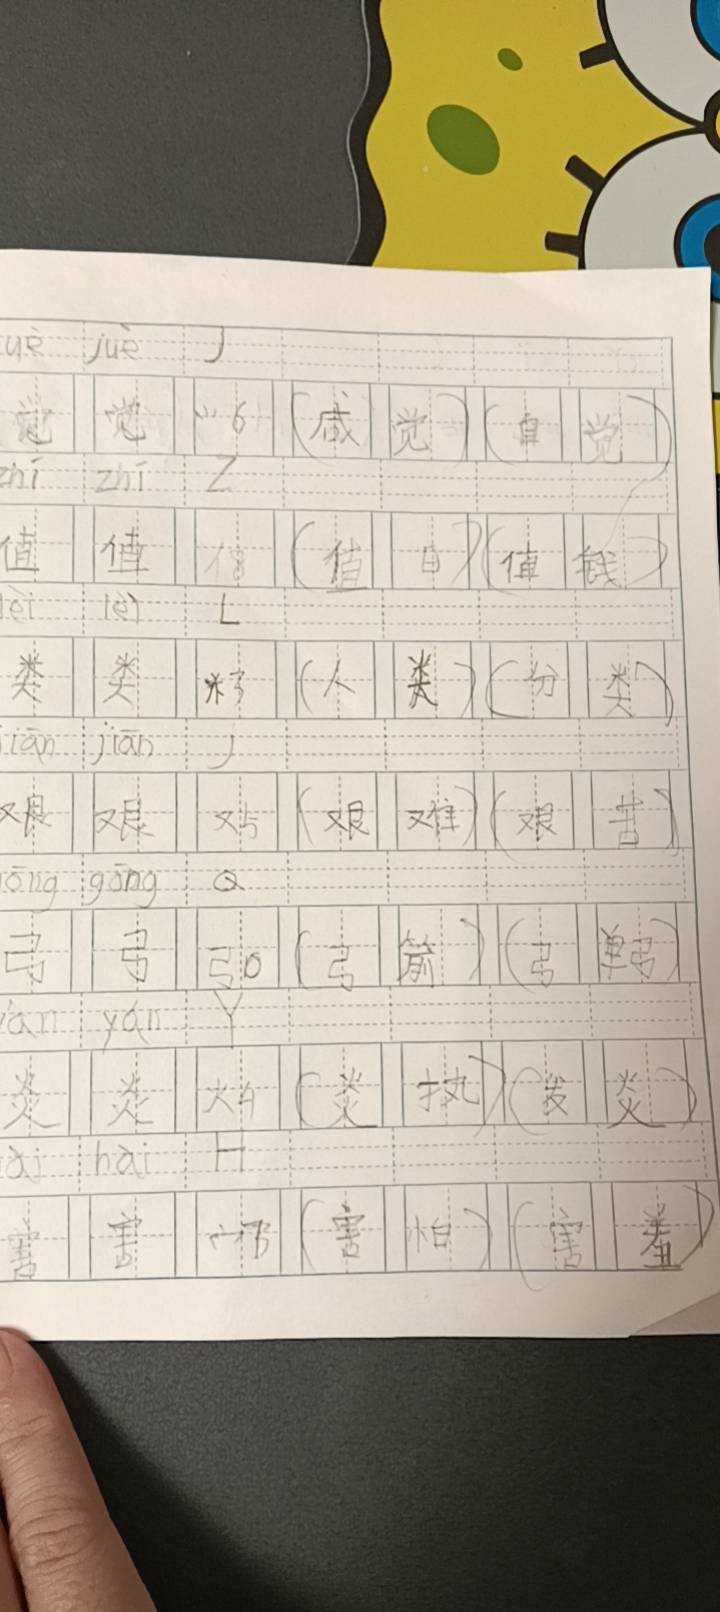 uè juè J
觉 觉 ⺍6 (感觉)(自觉)
zhí zhí Z
值 值 亻8 (值日)(值钱)
lèi lèi L
类 类 米3 (人类)(分类)
jiān jiān J
艰 艰 又5 (艰难)(艰苦)
gōng gōng G
弓 弓 弓0 (弓箭)(弓弩)
yán yán Y
炎 炎 火4 (炎热)(发炎)
ài hài H
害 害 宀7 (害怕)(害羞)